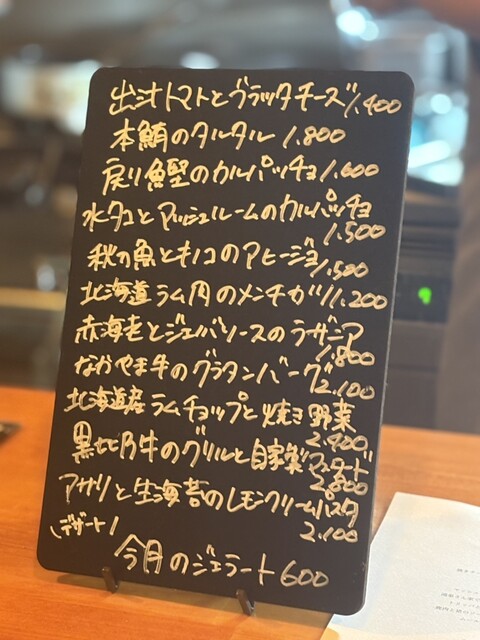 出汁トマトとブラッタチーズ 1.400
本鮪のタルタル 1.800
戻り鰹のカルパッチョ 1.600
水タコとマッシュルームのカルパッチョ
1.500
秋の魚とキノコのアヒージョ
1.500
北海道ラム肉のメンチカツ 1.200
赤海老とジェノバソースのラザニア
1.800
なかやま牛のグラタンバーグ
2.100
北海道産ラムチョップと焼き野菜
2.400
黒毛和牛のグリルと自家製マスタード
2.800
アサリと生海苔のレモンクリームパスタ
2.100
\デザート/
今月のジェラート 600